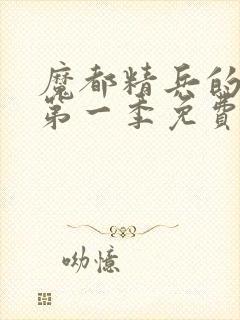 魔都精兵的
第一季免費
呦憶